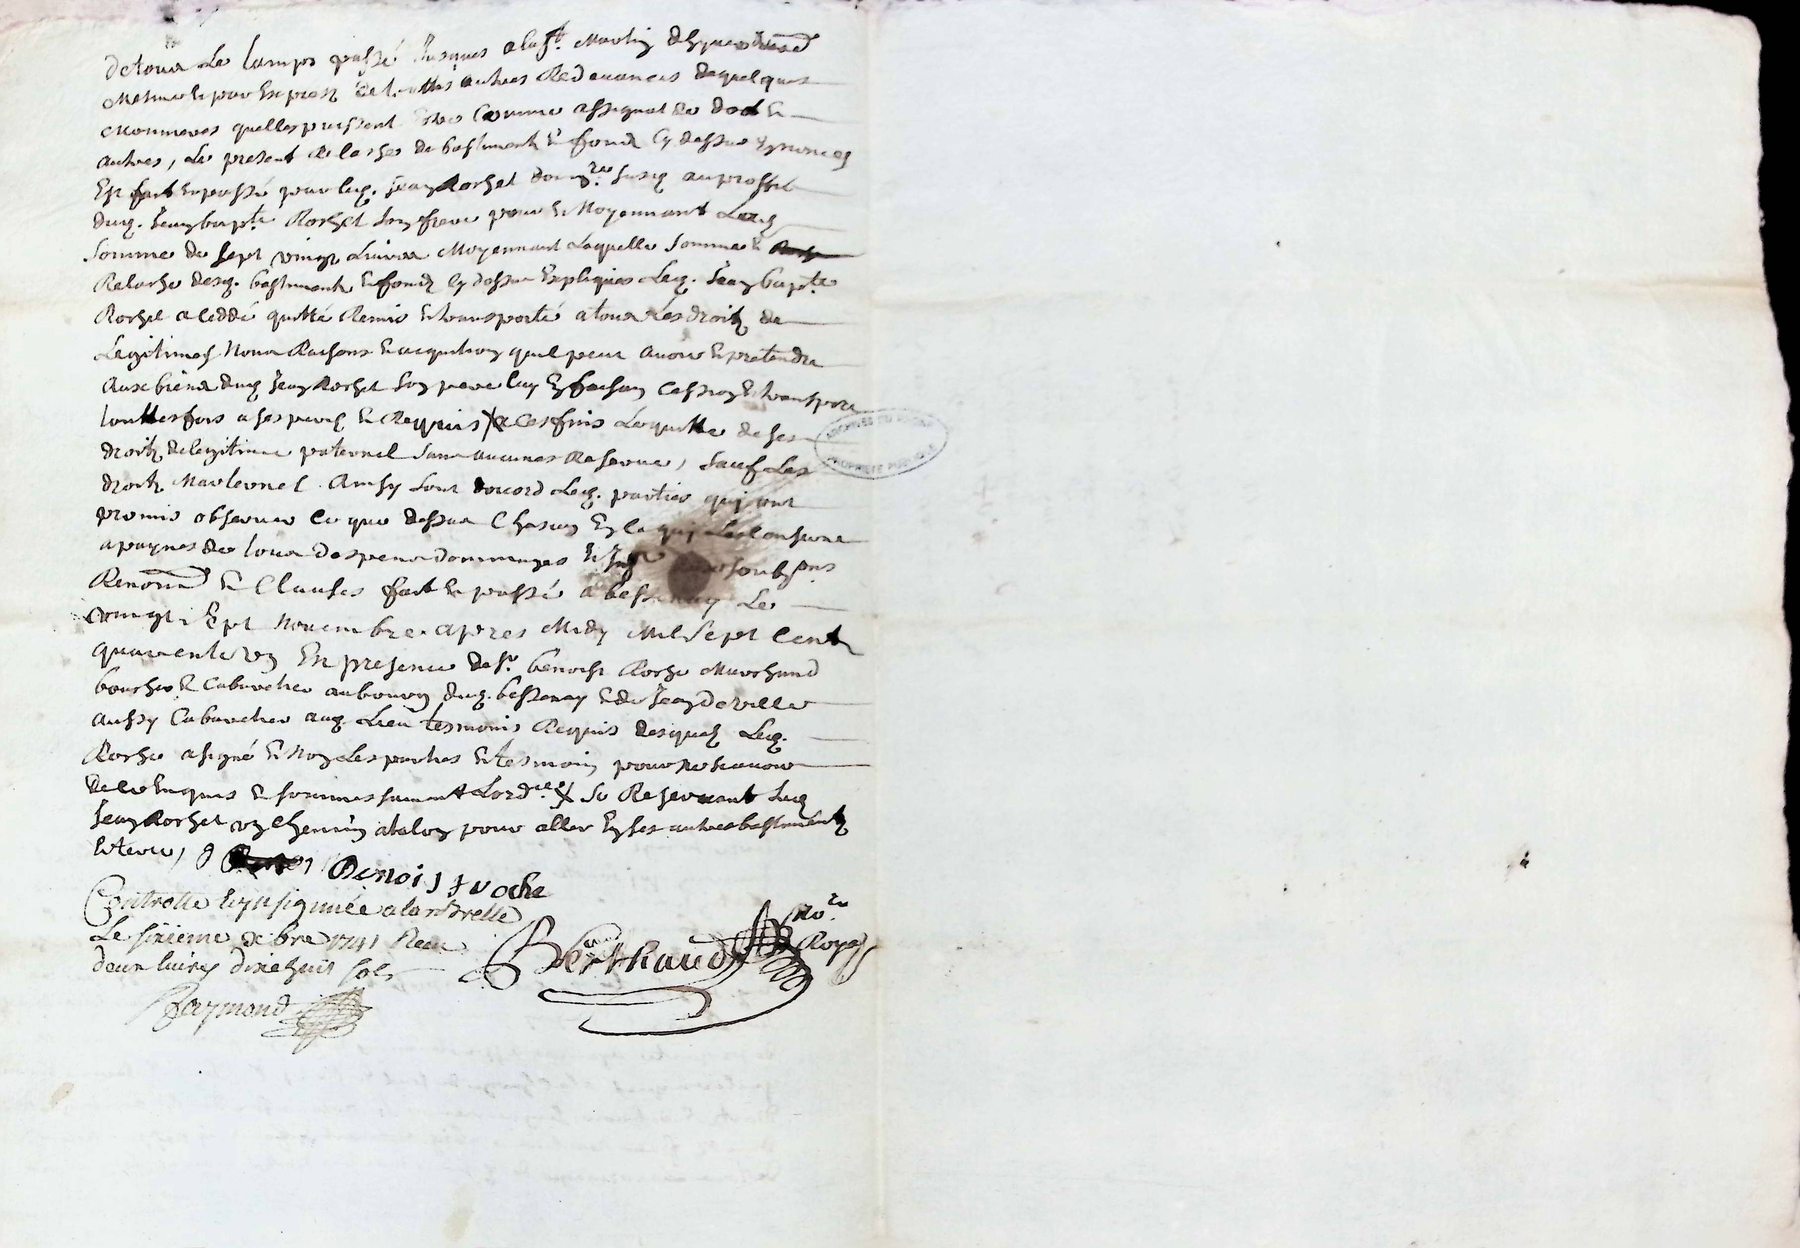 de tous le temps passé jusques a la St. Martin
mesme et par exprez de touttes autres Redevances de quelques
manneres quelles puissent estre comme assignat de dot et
autres, le present Relaches de bastiments et fonds cy dessus
Est fait et passé par led. jean Rochet au proffit
dud. Jean bapte. Rochet son frere pour et Moyennant la
somme de sept vingt Livres Moyennant laquelle somme et
Relache desd. bastiments et fonds cy dessus Expliqués Led. Jean bapte.
Rochet a ceddé quitté Remis et transporté a tous les droits de
Legitimes Noms Raisons et acquis quil peut avoir et pretendre
aux biens dud. Jean Rochet son pere luy En faisant cession et transport
touttesfois a ses perils et Requis a ces fins Le quitte de ses
droits de legitime paternel sans aucunes Reserve, sauf Les
droits Maternel Ainsy sont d'accord Led. parties qui ont
promis observer ce que dessus Chacun En ce qui Les Consernes
a paynes de tous despens dommages et
Renon et Clauses fait et passé a bessenay Le
vingt sept novembre apres Midy Mil Sept Cent
quarente un En presence de sr. benoist Roche Marchand
boucher et Cabaretier au bourg dud. bessenay et de Jean Deville
aussy Cabaretier aud. Lieu tesmoins Requis desquels Led.
Roche a signé et Non Les parties et tesmoin pour ne scavoir
de ce Enquis et sommes suivant Lordce. X se Reservant Led.
Jean Rochet un Chemin a talon pour aller En ses autres bastiments
et terre,
Benoist roche
Controllé et insinuée a larbrelle
Le sixieme xbre 1741 Recu
deux livres dixehuit sols
Berthaud Nore. Royal
Raymond
ARCHIVES DU RHONE
PROPRIETE PUBLIQUE